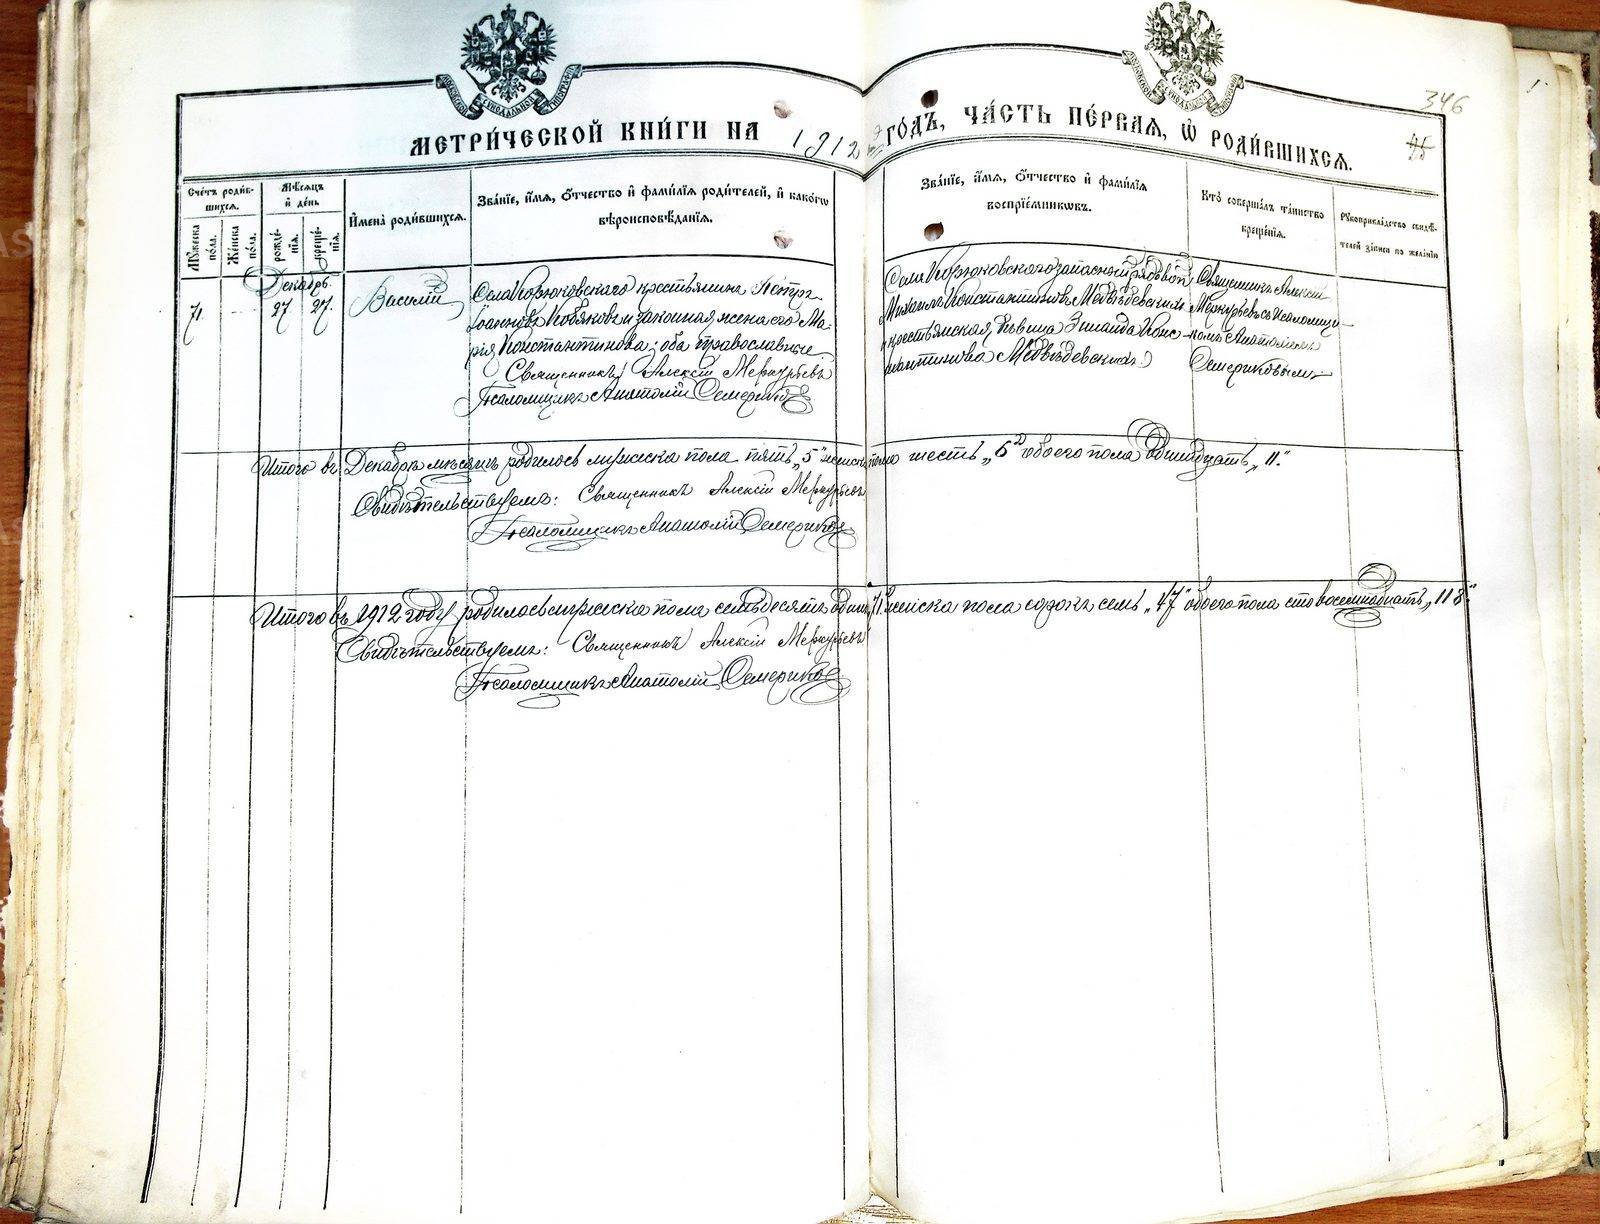 346
МЕТРИ́ЧЕСКОЙ КНИ́ГИ НА 1912 ГО́ДЪ, ЧА́СТЬ ПЕ́РВАЯ, Ѡ҆ РОДИ́ВШИХСЯ.
Сче́тъ роди́в-
шихся.
Мꙋ́жеска по́ла.
Же́нска по́ла.
Мѣ́сяцъ и҆ де́нь
рожде́-нїя.
креще́-нїя.
И҆мена̀ роди́вшихся.
Зва́нїе, и҆́мя, ѻ҆́тчество и҆ фами́лїя роди́телей, и҆ како́гѡ
вѣроисповѣ́данїя.
Зва́нїе, и҆́мя, ѻ҆́тчество и҆ фами́лїя
воспрїе́мникѡвъ.
Кто̀ соверша́лъ та́инство
креще́нїя.
Рꙋкоприкла́дство свидѣ́-
телей за́писи по жела́нїю
Декабрь.
71.
27
27.
Василій
Села Корюковскаго крестьянинъ Петръ
Іоанновъ Кобяковъ и законная жена его Ма-
рія Константинова; оба православные
Священникъ Алексій Меркурьевъ
Псаломщикъ Анатолій Семериковъ
Села Корюковскаго запасный рядовой
Михаилъ Константиновъ Медвѣдевскихъ
и крестьянская дѣвица Зинаида Конс-
тантинова Медвѣдевскихъ
Священникъ Алексій
Меркурьевъ съ псаломщи-
комъ Анатоліемъ
Семериковымъ
Итого въ Декабрѣ мѣсяцѣ родилось мужеска пола пять „5" женска пола шесть „6" обоего пола одинадцать „11."
Свидѣтельствуемъ: Священникъ Алексій Меркурьевъ
Псаломщикъ Анатолій Семериковъ
Итого въ 1912 году родилось мужеска пола семьдесятъ одинъ „71" женска пола сорокъ семь „47" обоего пола сто восемнадцать „118"
Свидѣтельствуемъ: Священникъ Алексій Меркурьевъ
Псаломщикъ Анатолій Семериковъ